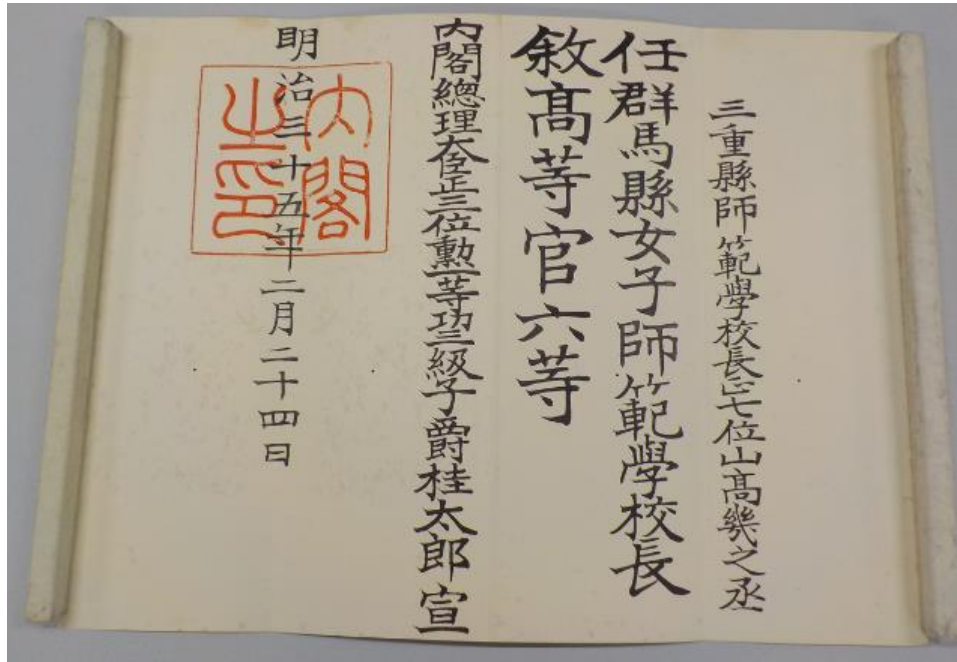 三重縣師範學校長正七位山髙幾之丞
任群馬縣女子師範學校長
敘髙等官六等
內閣總理大臣正三位勲一等功三級子爵桂太郎宣
明治三十五年二月二十四日
內閣之印